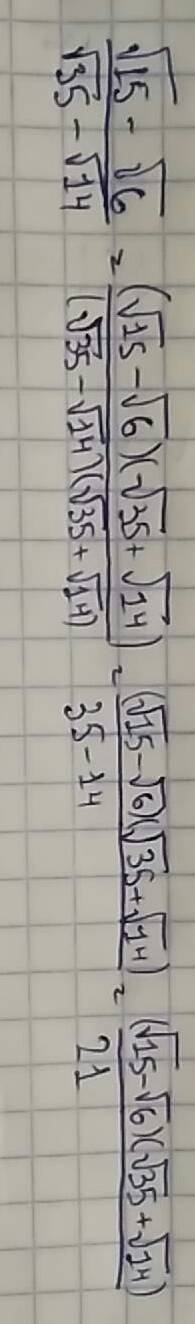 (√15 - √6)/(√35 - √14) = ((√15 - √6)(√35 + √14))/((√35 - √14)(√35 + √14)) = ((√15 - √6)(√35 + √14))/(35 - 14) = ((√15 - √6)(√35 + √14))/21